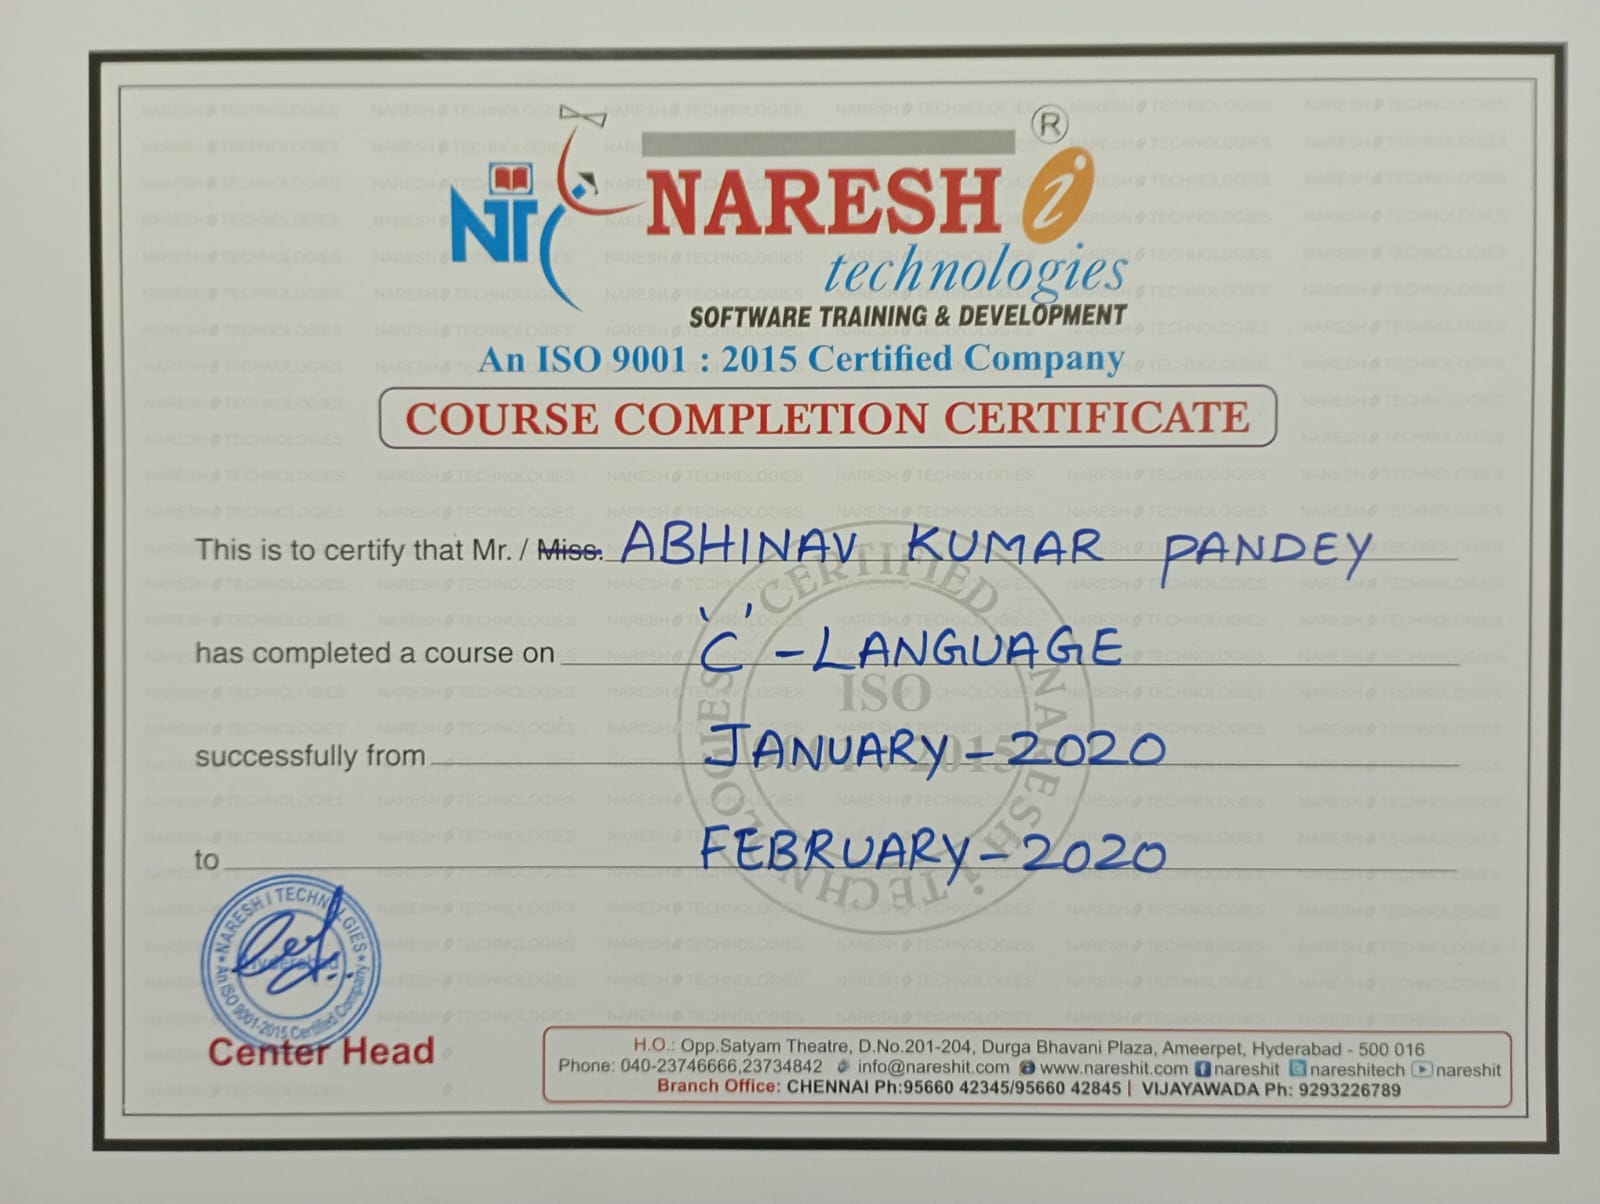 ®
NT
NARESH i
technologies
SOFTWARE TRAINING & DEVELOPMENT
An ISO 9001 : 2015 Certified Company
COURSE COMPLETION CERTIFICATE
This is to certify that Mr. / Miss. ABHINAV KUMAR PANDEY
has completed a course on 'C' - LANGUAGE
successfully from JANUARY - 2020
to FEBRUARY - 2020
CERTIFIED
NARESH i TECHNOLOGIES
ISO
9001 : 2015
NARESH I TECHNOLOGIES
Hyderabad
An ISO 9001-2015 Certified Company
Center Head
H.O.: Opp.Satyam Theatre, D.No.201-204, Durga Bhavani Plaza, Ameerpet, Hyderabad - 500 016
Phone: 040-23746666,23734842 info@nareshit.com www.nareshit.com nareshit nareshitech nareshit
Branch Office: CHENNAI Ph:95660 42345/95660 42845 | VIJAYAWADA Ph: 9293226789